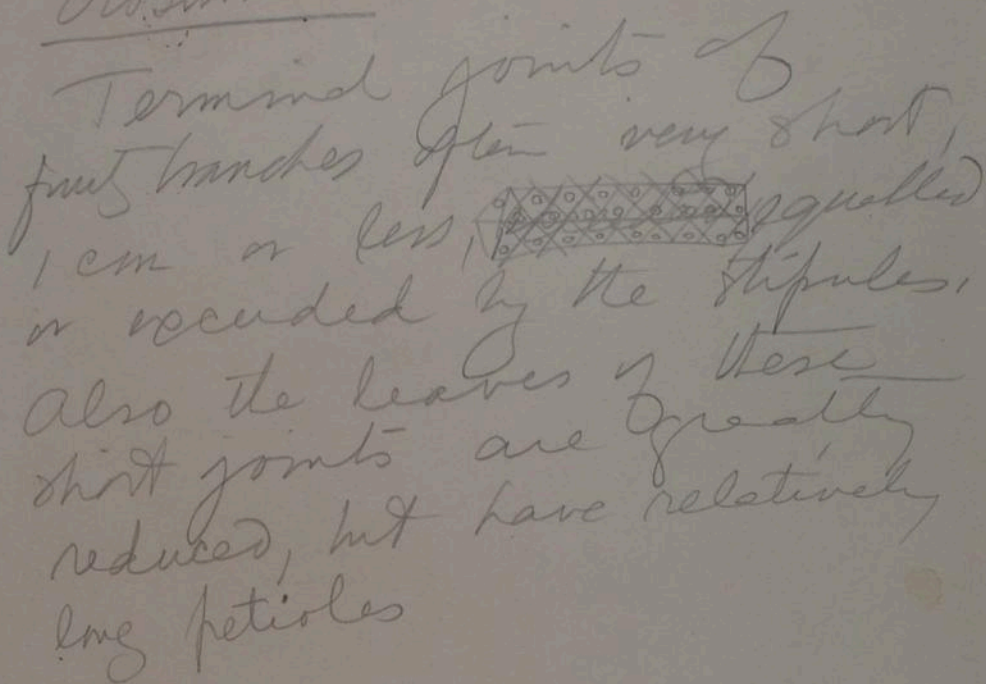 Terminal joints of
fruit branches often very short,
1 cm or less, equalled
or exceeded by the stipules.
Also the leaves of these
short joints are greatly
reduced, but have relatively
long petioles